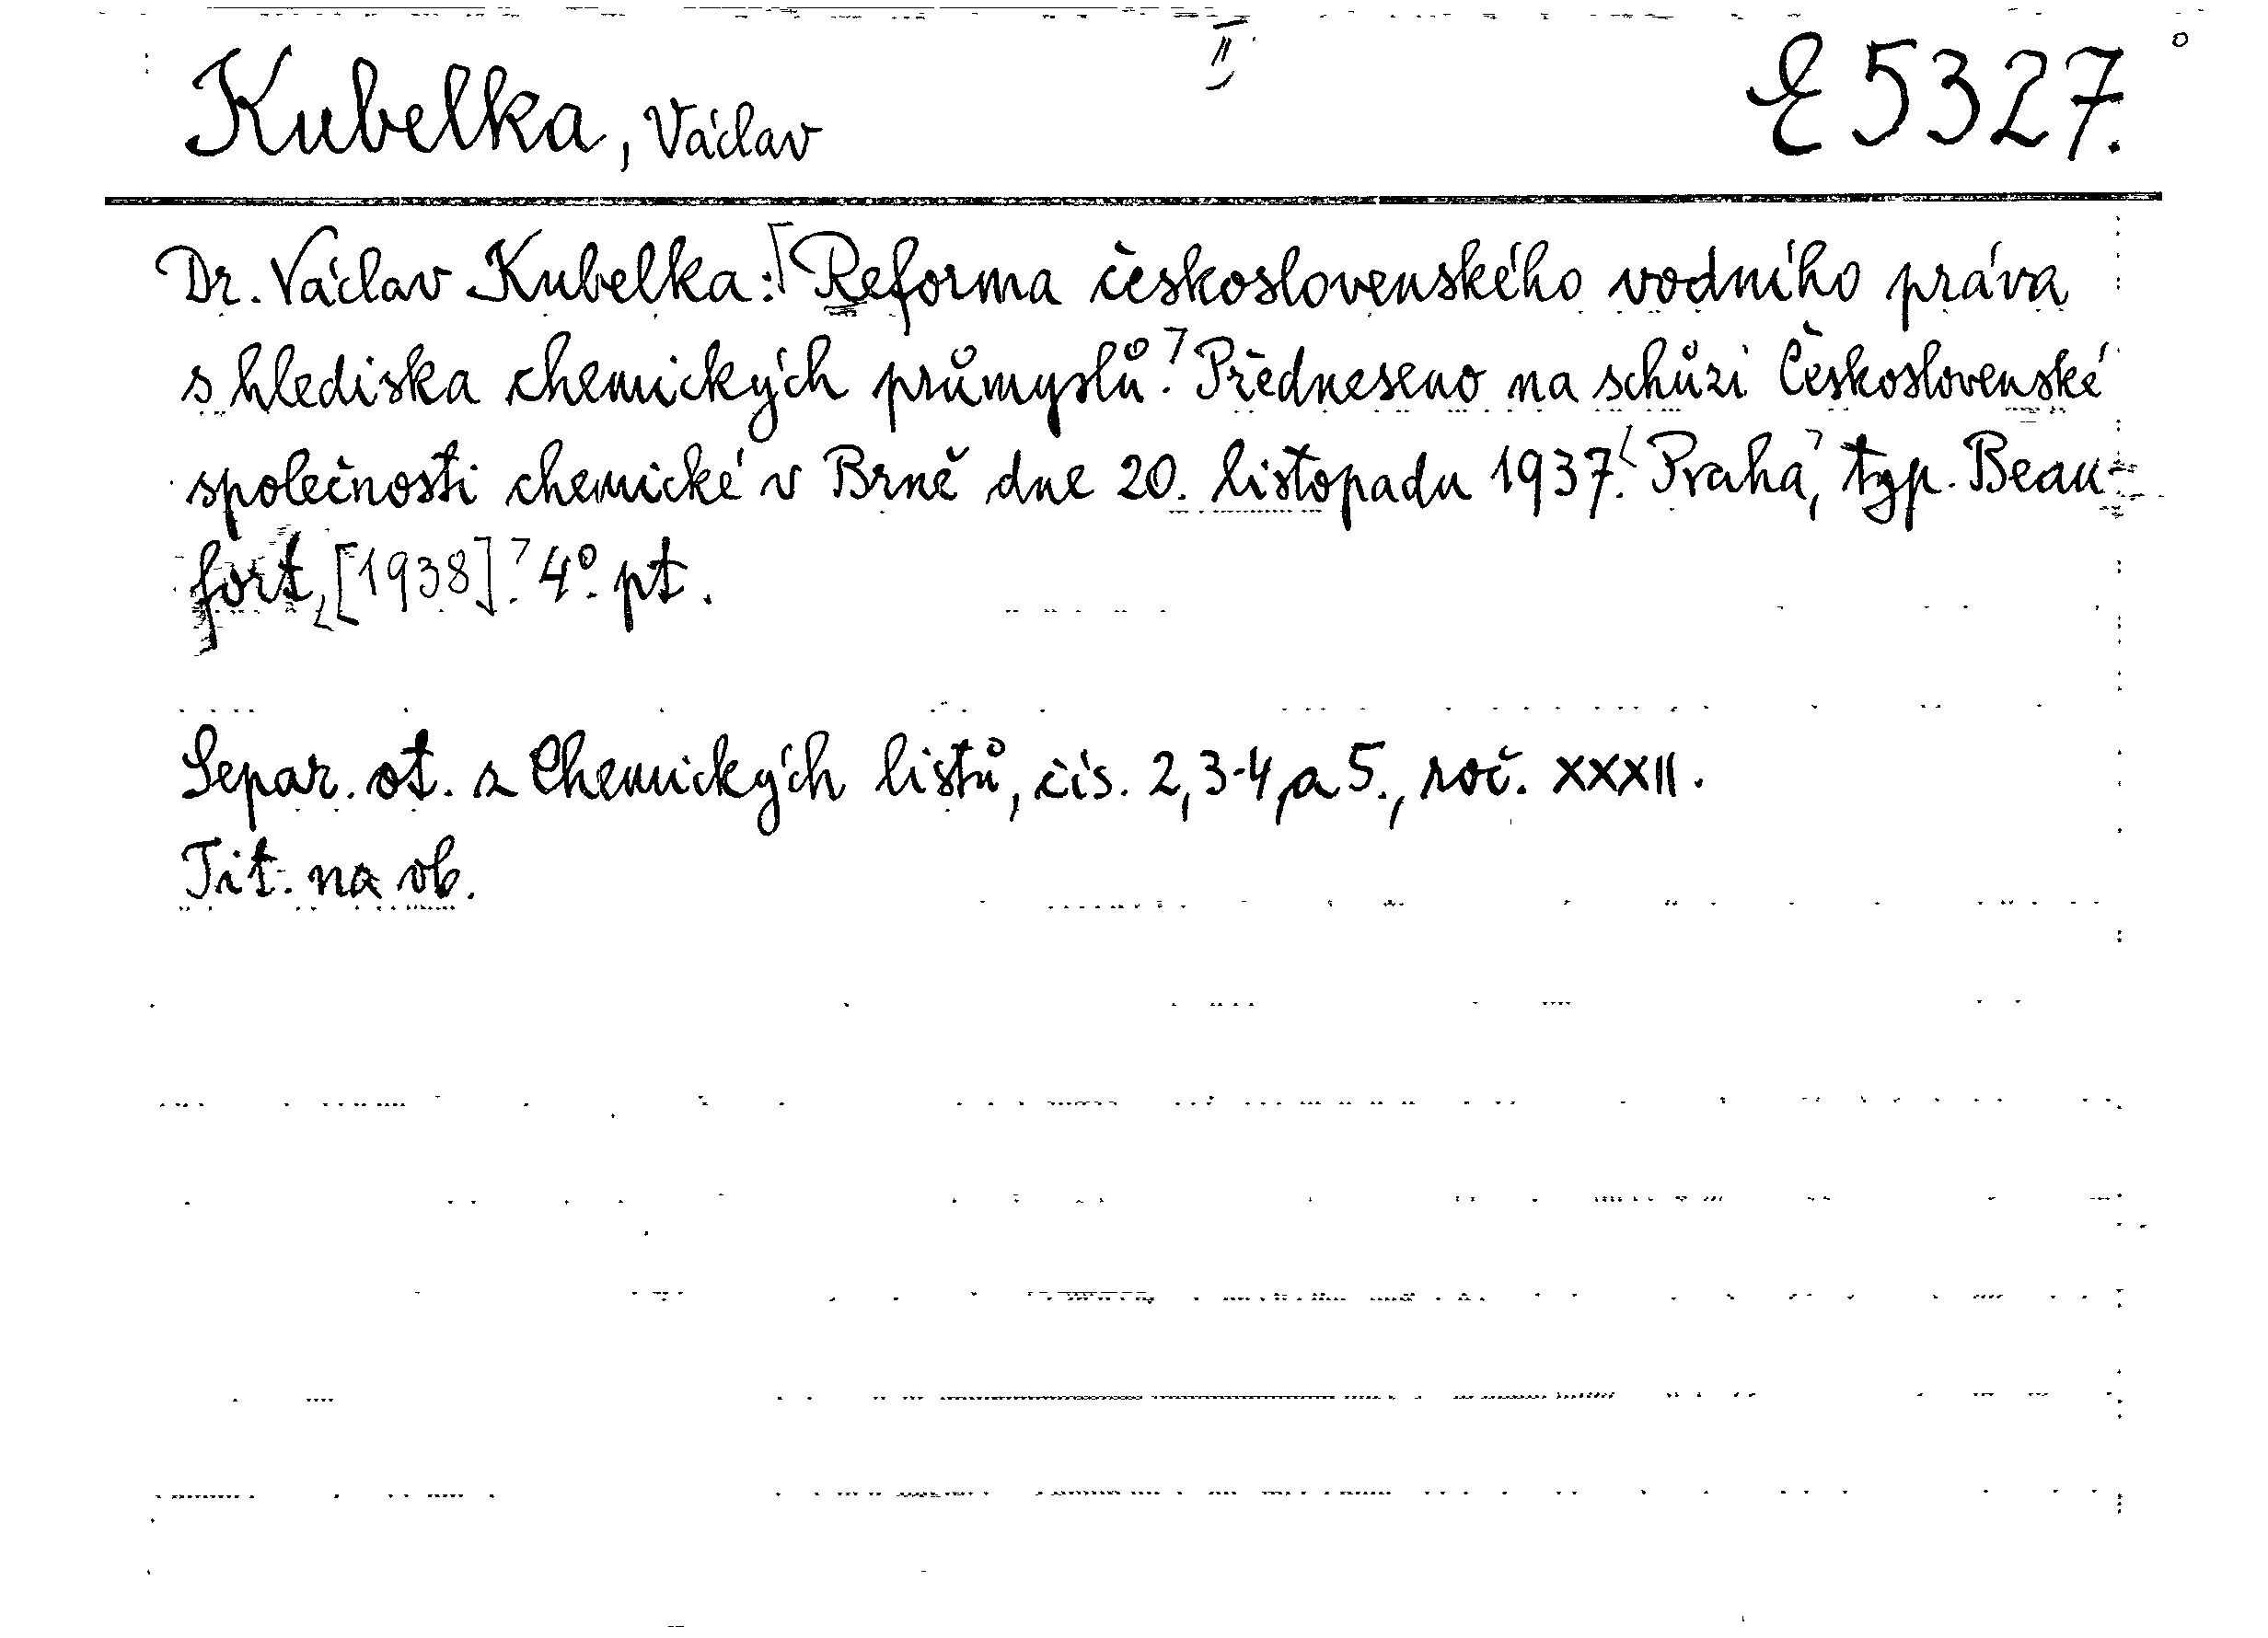 Kubelka, Václav
E 5327.
Dr. Václav Kubelka: Reforma československého vodního práva
s hlediska chemických průmyslů. Předneseno na schůzi Československé
společnosti chemické v Brně dne 20. listopadu 1937. Praha, typ. Beau-
fort, [1938]. 4°. pt.
Separ. ot. z Chemických listů, čís. 2, 3-4, a 5., roč. XXXII.
Tit. na ob.